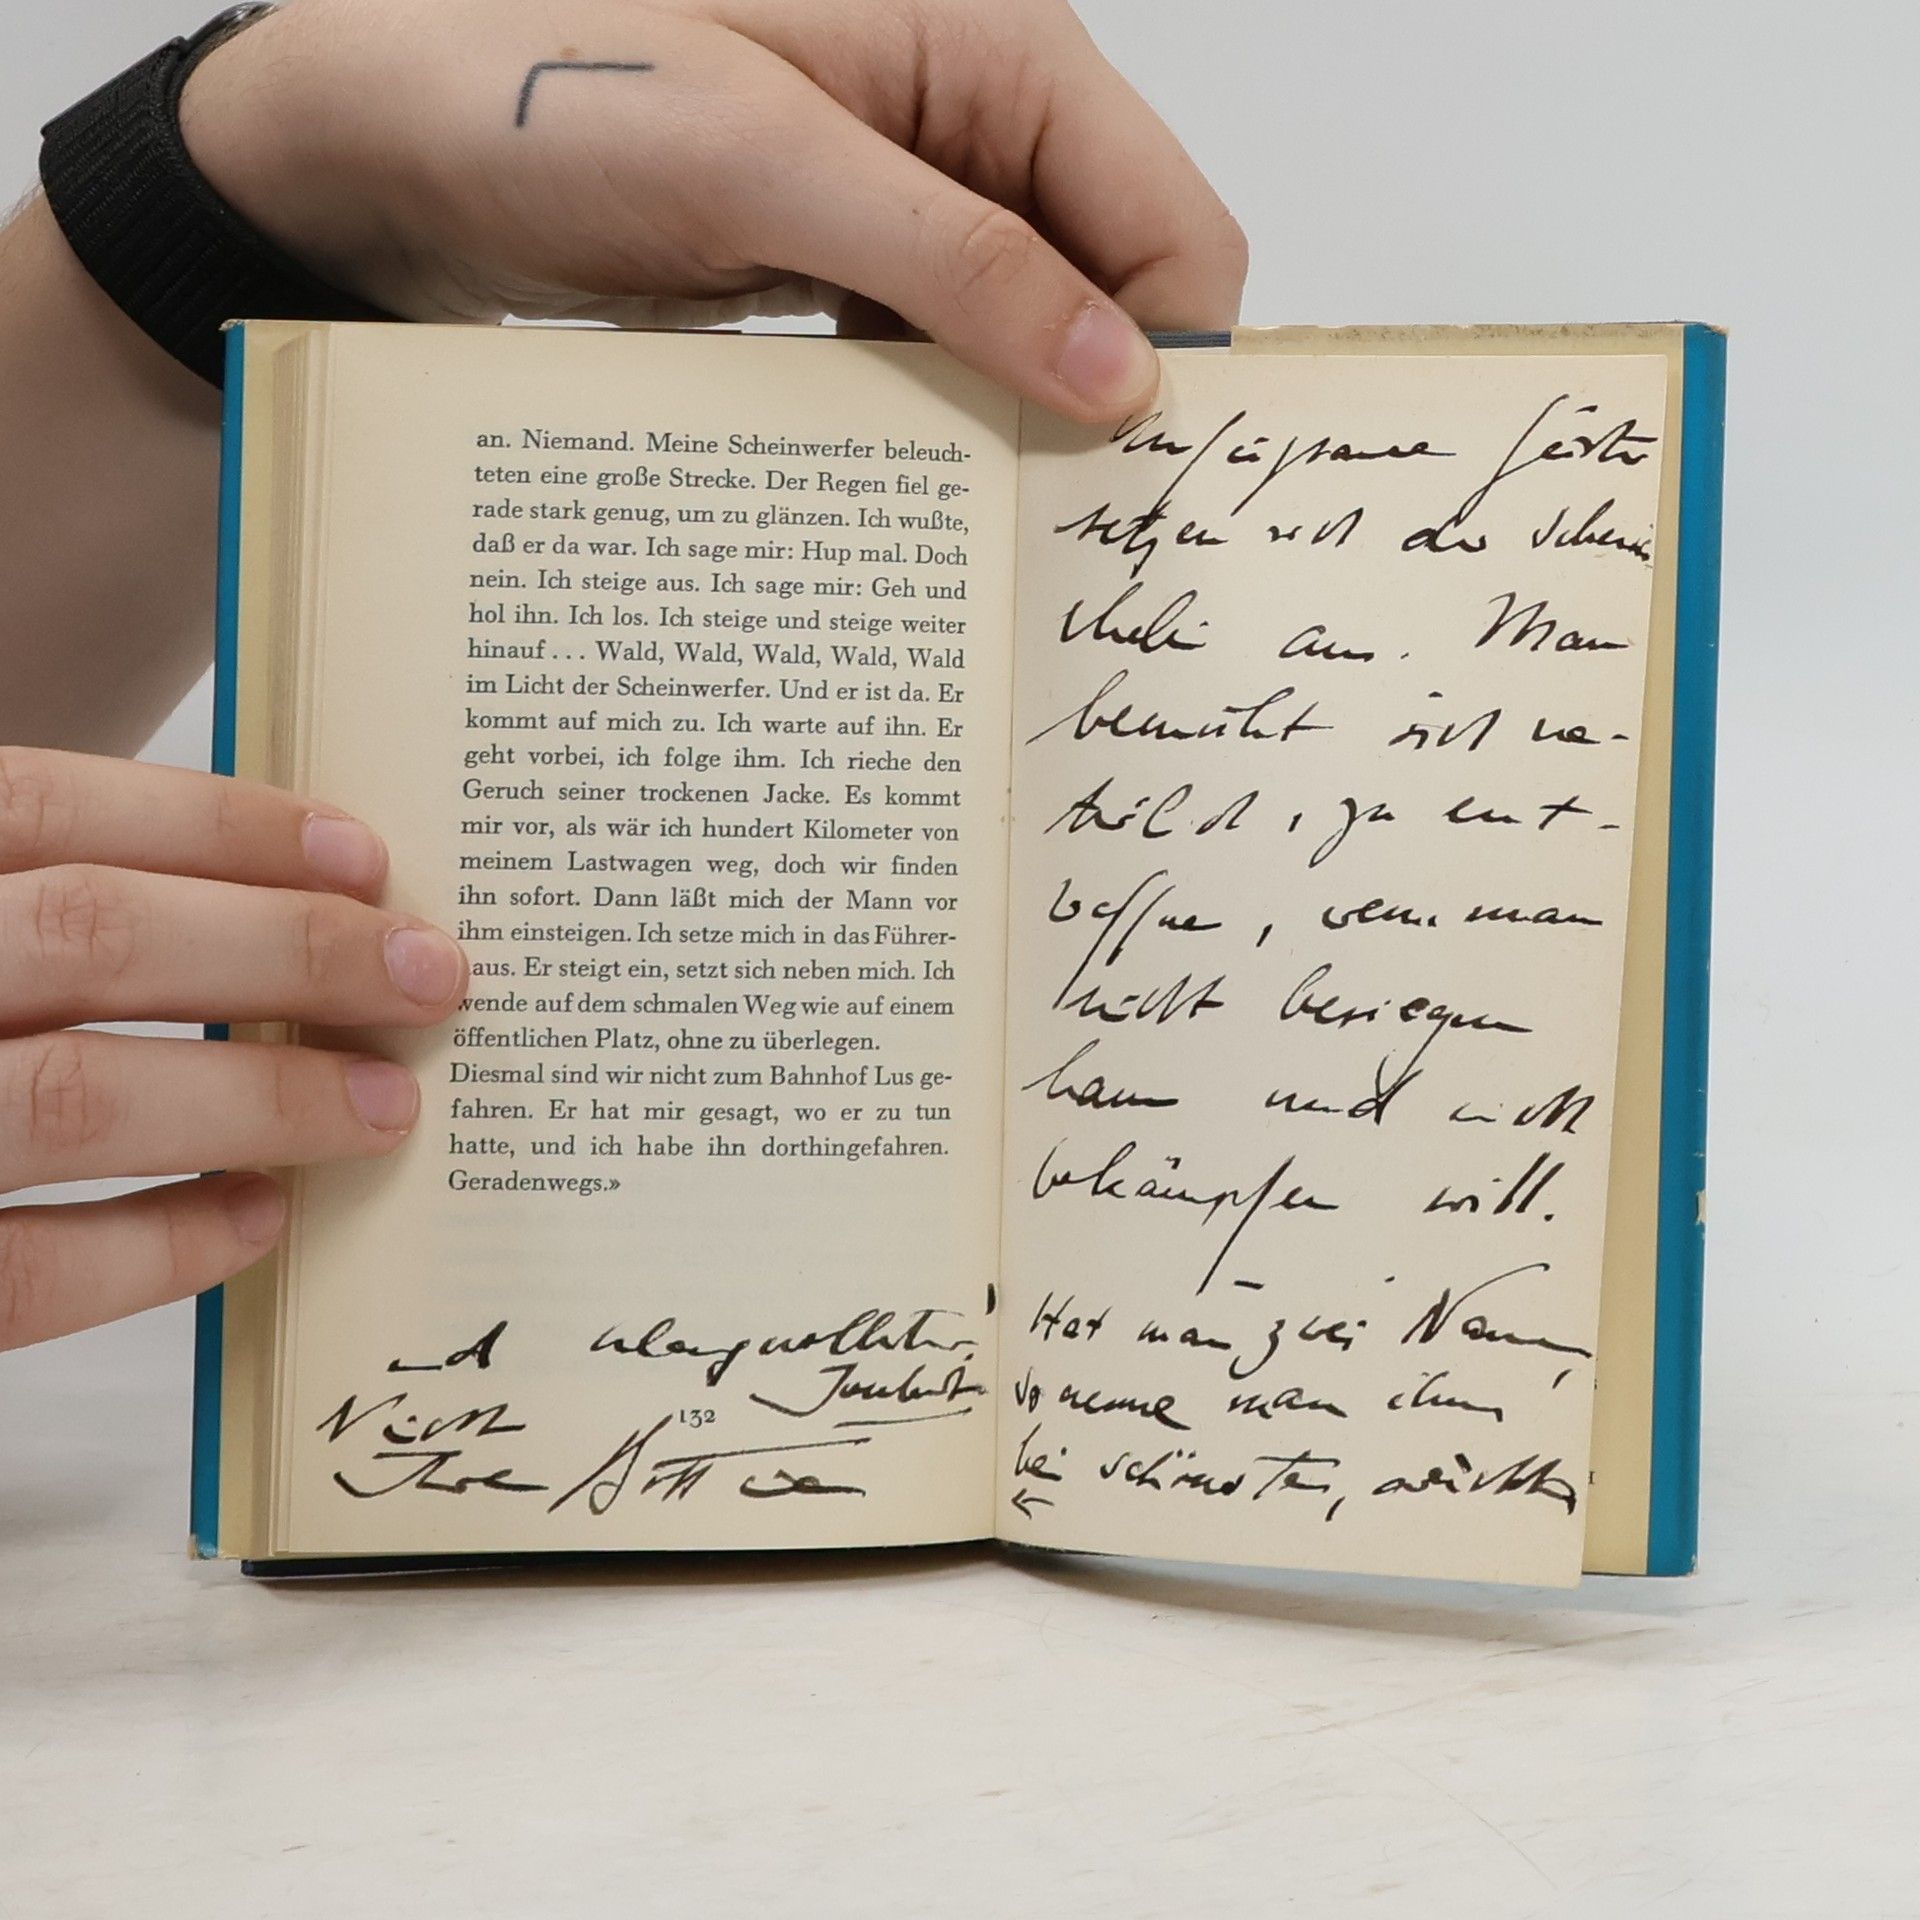 an. Niemand. Meine Scheinwerfer beleuch-
teten eine große Strecke. Der Regen fiel ge-
rade stark genug, um zu glänzen. Ich wußte,
daß er da war. Ich sage mir: Hup mal. Doch
nein. Ich steige aus. Ich sage mir: Geh und
hol ihn. Ich los. Ich steige und steige weiter
hinauf ... Wald, Wald, Wald, Wald, Wald
im Licht der Scheinwerfer. Und er ist da. Er
kommt auf mich zu. Ich warte auf ihn. Er
geht vorbei, ich folge ihm. Ich rieche den
Geruch seiner trockenen Jacke. Es kommt
mir vor, als wär ich hundert Kilometer von
meinem Lastwagen weg, doch wir finden
ihn sofort. Dann läßt mich der Mann vor
ihm einsteigen. Ich setze mich in das Führer-
aus. Er steigt ein, setzt sich neben mich. Ich
wende auf dem schmalen Weg wie auf einem
öffentlichen Platz, ohne zu überlegen.
Diesmal sind wir nicht zum Bahnhof Lus ge-
fahren. Er hat mir gesagt, wo er zu tun
hatte, und ich habe ihn dorthingefahren.
Geradenwegs.»
und klangvollsten.
Joubert
Nicht
132
Ihre
Geister
setzen sich der
aus. Man
bemüht sich na-
türlich, zu ent-
waffnen, wenn man
nicht besiegen
kann und nicht
bekämpfen will.
Hat man zwei Namen,
so nenne man ihn
beim schönsten,